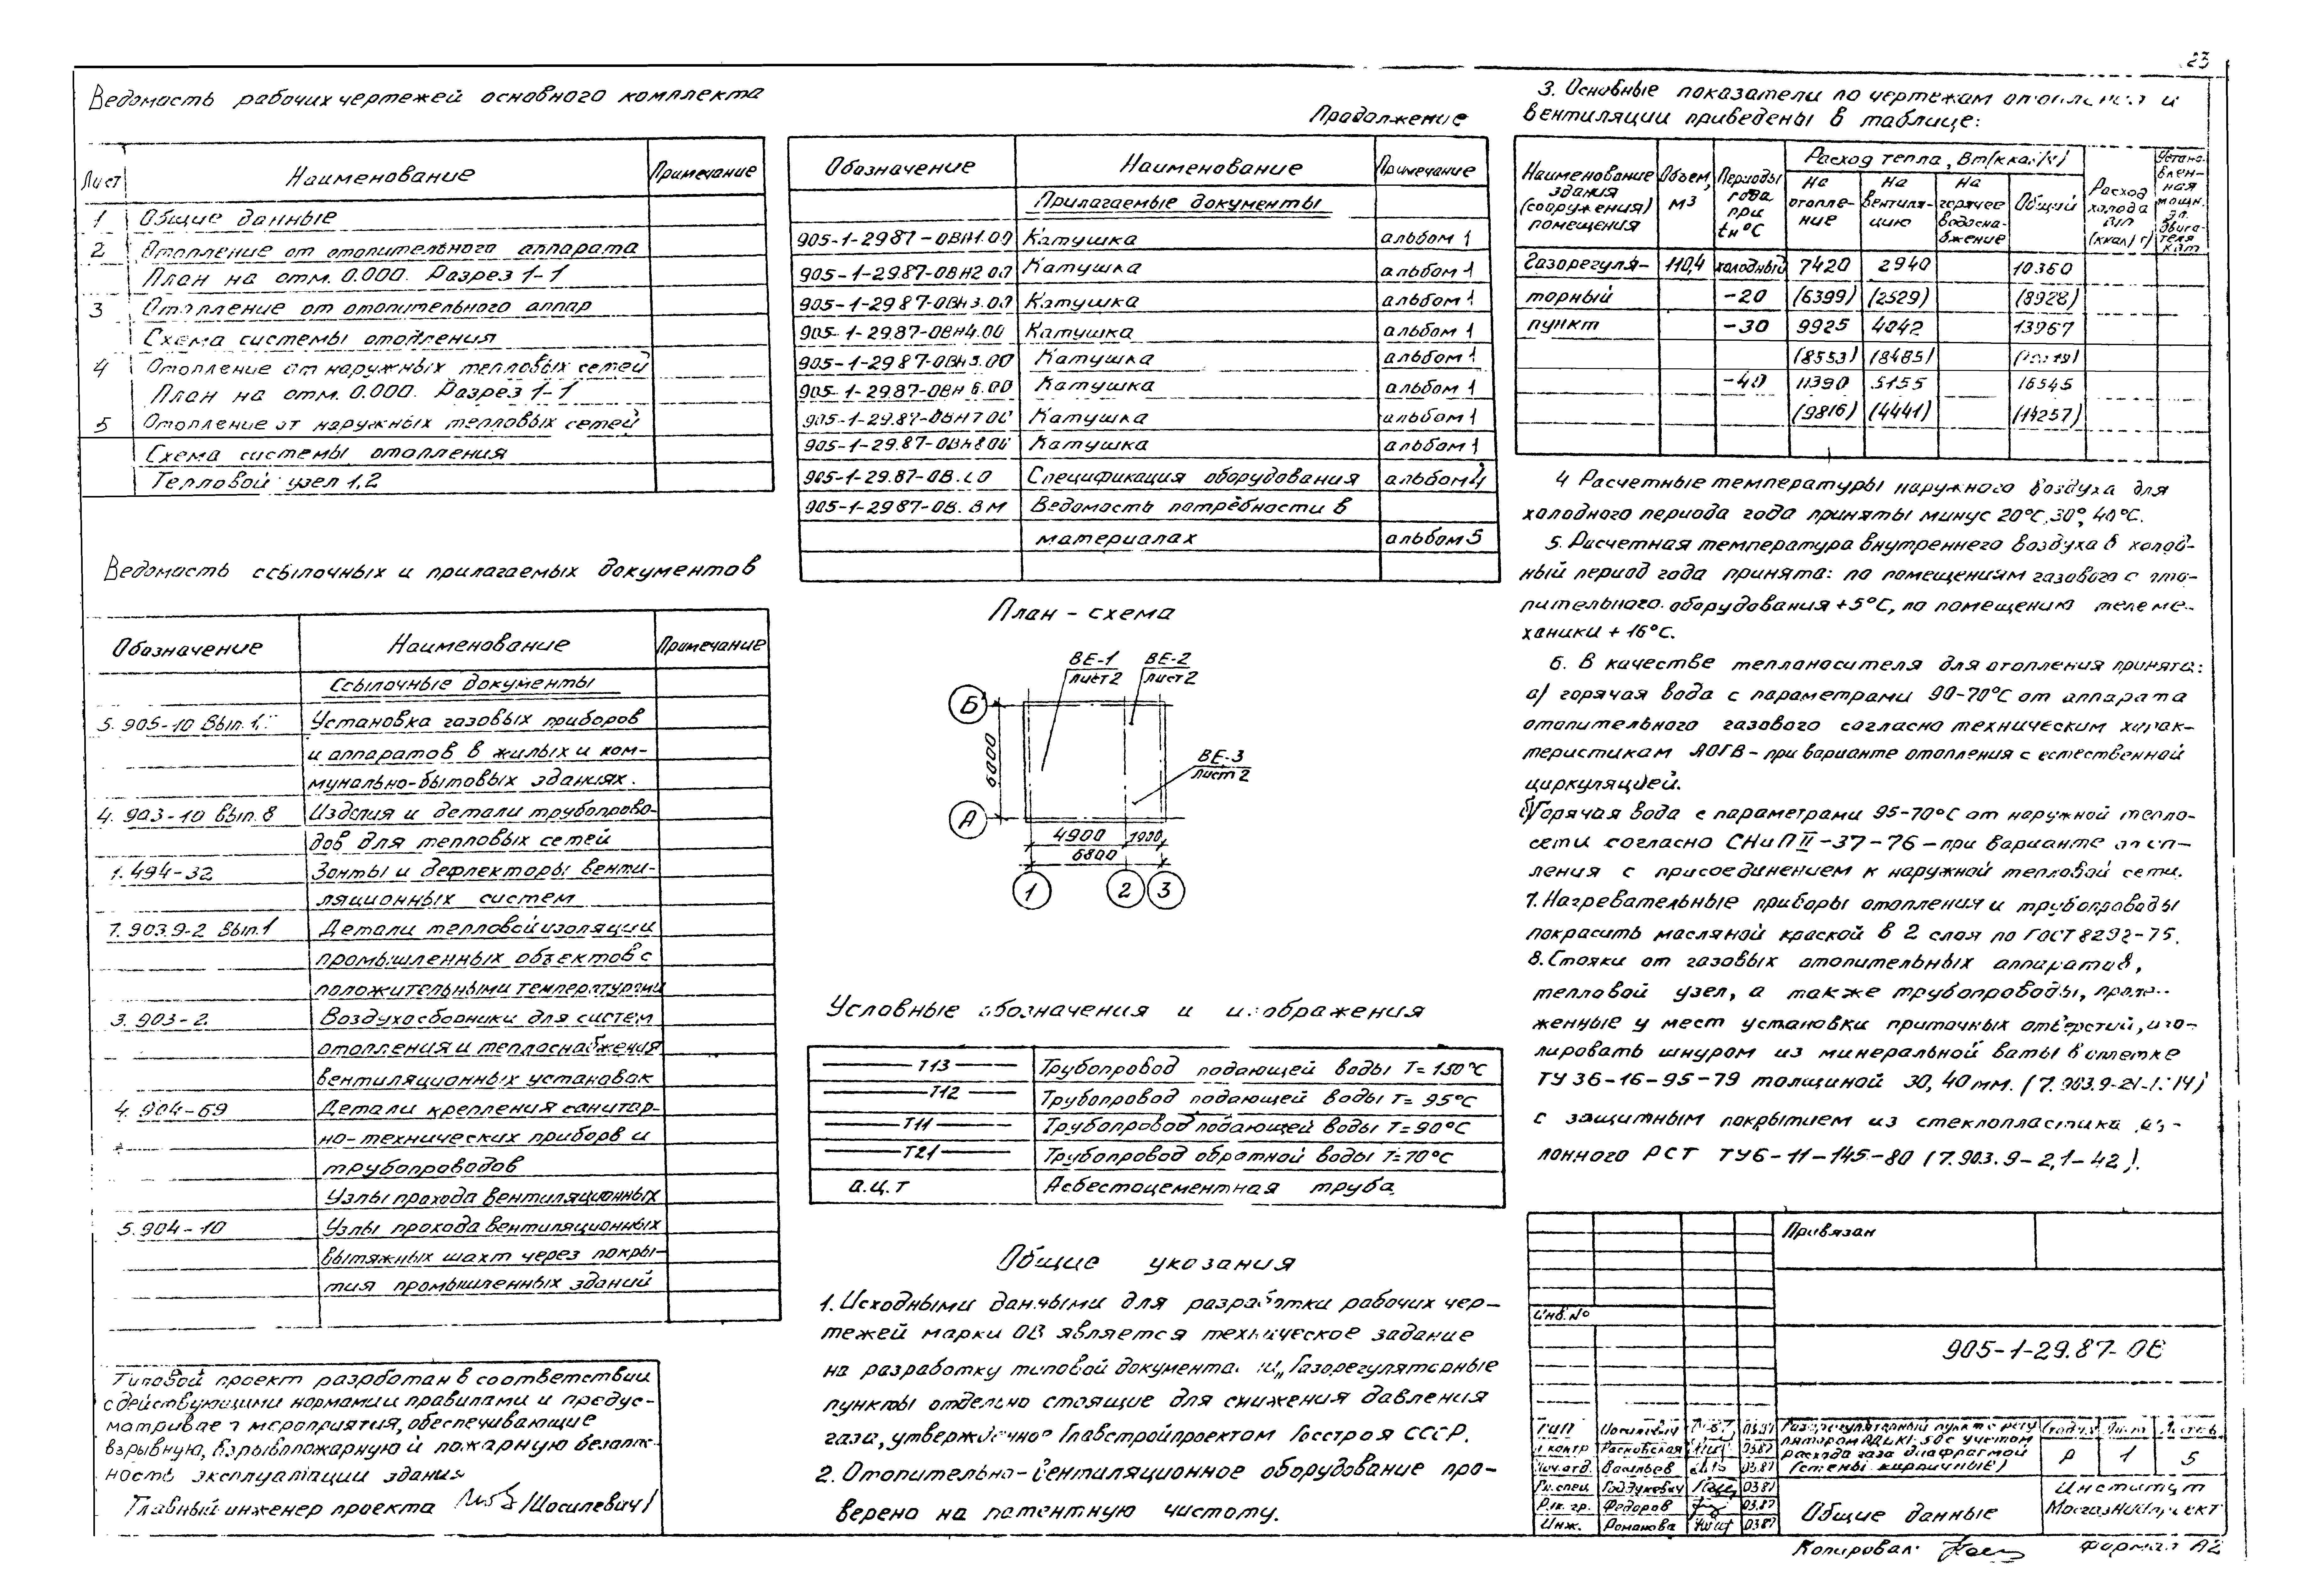 23
Ведомость рабочих чертежей основного комплекта
Лист Наименование Примечание
1 Общие данные
2 Отопление от отопительного аппарата
План на отм. 0.000. Разрез 1-1
3 Отопление от отопительного аппар
Схема системы отопления
4 Отопление от наружных тепловых сетей
План на отм. 0.000. Разрез 1-1
5 Отопление от наружных тепловых сетей
Схема системы отопления
Тепловой узел 1,2
Ведомость ссылочных и прилагаемых документов
Обозначение Наименование Примечание
Ссылочные документы
5.905-10 Вып.1, Установка газовых приборов
и аппаратов в жилых и ком-
мунально-бытовых зданиях.
4.903-10 Вып.8 Изделия и детали трубопрово-
дов для тепловых сетей
1.494-32 Зонты и дефлекторы венти-
ляционных систем
7.903.9-2 Вып.1 Детали тепловой изоляции
промышленных объектов с
положительными температурами
3.903-2. Воздухосборники для систем
отопления и теплоснабжения
вентиляционных установок
4.904-69 Детали крепления санитар-
но-технических приборв и
трубопроводов
Узлы прохода вентиляционных
5.904-10 Узлы прохода вентиляционных
вытяжных шахт через покры-
тия промышленных зданий
Типовой проект разработан в соответствии
с действующими нормами и правилами и предус-
матривает мероприятия, обеспечивающие
взрывную, взрывопожарную и пожарную безопас-
ность эксплуатации здания
Главный инженер проекта /Иосилевич/
Продолжение
Обозначение Наименование Примечание
Прилагаемые документы
905-1-29.87-ОВН1.00 Катушка альбом 1
905-1-29.87-ОВН2.00 Катушка альбом 1
905-1-29.87-ОВН3.00 Катушка альбом 1
905-1-29.87-ОВН4.00 Катушка альбом 1
905-1-29.87-ОВН5.00 Катушка альбом 1
905-1-29.87-ОВН6.00 Катушка альбом 1
905-1-29.87-ОВН7.00 Катушка альбом 1
905-1-29.87-ОВН8.00 Катушка альбом 1
905-1-29.87-ОВ.СО Спецификация оборудования альбом 4
905-1-29.87-ОВ.ВМ Ведомость потребности в
материалах альбом 5
План - схема
ВЕ-1 ВЕ-2
лист 2 лист 2
Б
6000
ВЕ-3
лист 2
А
4900 1000
6800
1 2 3
Условные обозначения и изображения
Т13 Трубопровод подающей воды Т=150°С
Т12 Трубопровод подающей воды Т=95°С
Т11 Трубопровод подающей воды Т=90°С
Т21 Трубопровод обратной воды Т=70°С
а.ц.т Асбестоцементная труба.
Общие указания
1. Исходными данными для разработки рабочих чер-
тежей марки ОВ является техническое задание
на разработку типовой документации „Газорегуляторные
пункты отдельно стоящие для снижения давления
газа, утверждённое Главстройпроектом Госстроя СССР.
2. Отопительно-вентиляционное оборудование про-
верено на патентную чистоту.
3. Основные показатели по чертежам отопления и
вентиляции приведены в таблице:
Наименование здания (сооружения) помещения Объем, м³ Периоды года при tн°С Расход тепла, Вт(ккал/ч) Расход холода Вт (ккал/ч) Установлен-ная мощн. эл. двига-теля кВт
на отопле-ние на вентиля-цию на горячее водосна-бжение Общий
Газорегуля- 110,4 холодный 7420 2940 10360
торный -20 (6399) (2529) (8928)
пункт -30 9925 4042 13967
(8553) (3485)
-40 11390 5155 16545
(9816) (4441) (14257)
4 Расчетные температуры наружного воздуха для
холодного периода года приняты минус 20°С, 30°, 40°С.
5. Расчетная температура внутреннего воздуха в холод-
ный период года принята: по помещениям газового с ото-
пительного оборудования +5°С, по помещению телеме-
ханики +16°С.
6. В качестве теплоносителя для отопления принята:
а) горячая вода с параметрами 90-70°С от аппарата
отопительного газового согласно техническим харак-
теристикам АОГВ - при варианте отопления с естественной
циркуляцией.
б) Горячая вода с параметрами 95-70°С от наружной тепло-
сети согласно СНиП II-37-76 - при варианте отоп-
ления с присоединением к наружной тепловой сети.
7. Нагревательные приборы отопления и трубопроводы
покрасить масляной краской в 2 слоя по ГОСТ 8292-75.
8. Стояки от газовых отопительных аппаратов,
тепловой узел, а также трубопроводы, проло-
женные у мест установки приточных отверстий, изо-
лировать шнуром из минеральной ваты в оплетке
ТУ 36-16-95-79 толщиной 30, 40 мм.
с защитным покрытием из стеклопластика ру-
лонного РСТ ТУ6-11-145-80 (7.903.9-2,1-42).
Привязан
Инв.№
905-1-29.87-ОВ
ГИП Иосилевич 03.87
Н.контр Расновская 03.87
Нач.отд. Васильев 03.87
Гл.спец. 03.87
Рук.гр. Федоров 03.87
Инж. Романова 03.87
Газорегуляторный пункт с регу
лятором с учетом
расхода газа диафрагмой
(стены кирпичные)
Стадия Лист Листов
Р 1 5
Общие данные
Институт
МосгазНИИпроект
Копировал:
Формат А2